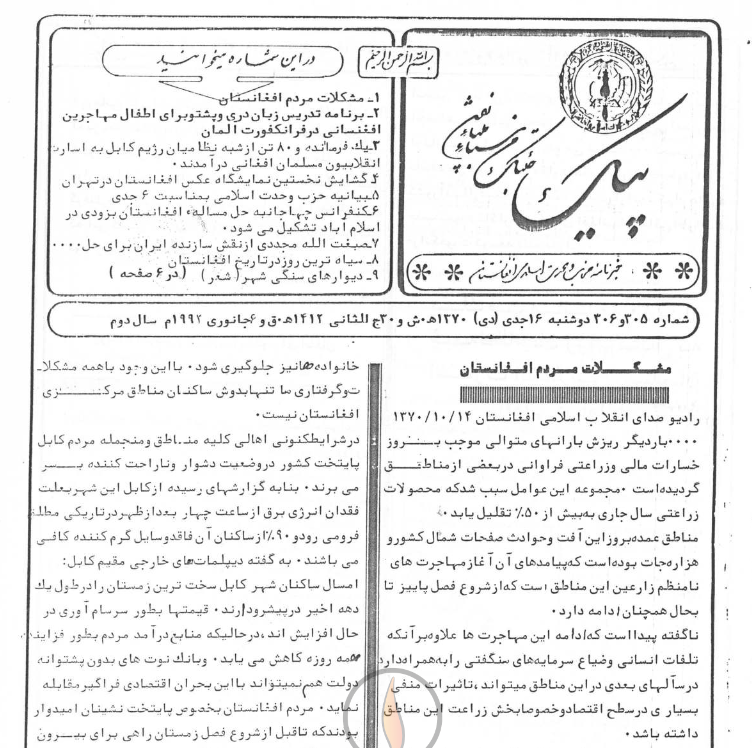 بسم الله الرحمن الرحیم
پیک
خبرنامه حزب وحدت اسلامی افغانستان
در این شماره میخوانید
۱ـ مشکلات مردم افغانستان
۲ـ برنامه تدریس زبان دری و پشتو برای اطفال مهاجرین
افغنسانی در فرانکفورت المان
۳ـ یك فرمانده و ۸۰ تن از شبه نظامیان رژیم کابل به اسارت
انقلابیون مسلمان افغانی در آمدند۰
۴ـ گشایش نخستین نمایشگاه عکس افغانستان در تهران
۵ـ بیانیه حزب وحدت اسلامی بمناسبت ۶ جدی
۶ـ کنفرانس چهاجانبه حل مساله افغانستان بزودی در
اسلام آباد تشکیل می شود۰
۷ـ صبغت الله مجددی از نقش سازنده ایران برای حل۰۰۰۰
۸ـ سیاه ترین روز در تاریخ افغانستان
۹ـ دیوارهای سنگی شهر (شعر) (در ۶ صفحه)
شماره ۳۰۵ و ۳۰۶ دوشنبه ۱۶ جدی (دی) ۱۳۷۰ ه‍.ش و ۳۰ ج الثانی ۱۴۱۲ ه‍.ق و ۶ جانوری ۱۹۹۲ م سال دوم
مشکــلات مـردم افـغانستان
رادیو صدای انقلاب اسلامی افغانستان ۱۳۷۰/۱۰/۱۴
۰۰۰۰باردیگر ریزش بارانهای متوالی موجب بــروز
خسارات مالی وزراعتی فراوانی در بعضی از مناطــق
گردیده است ۰مجموعه این عوامل سبب شدکه محصولات
زراعتی سال جاری به بیش از ۵۰٪ تقلیل یابد۰
مناطق عمده بروز این آفت وحوادث صفحات شمال کشورو
هزاره جات بوده است که پیامدهای آن آغاز مهاجرت های
نامنظم زارعین این مناطق است که از شروع فصل پاییز تا
بحال همچنان ادامه دارد۰
ناگفته پیدا است که ادامه این مهاجرت ها علاوه بر آنکه
تلفات انسانی وضیاع سرمایه های سنگفتی را به همراه دارد
در سالهای بعدی در این مناطق میتواند، تاثیرات منفی
بسیار ی در سطح اقتصاد وخصوصا بخش زراعت این مناطق
داشته باشد۰
خانواده ها نیز جلوگیری شود۰ با این وجود با همه مشکلا
ت و گرفتاری ها تنها بدوش ساکنان مناطق مرکــزی
افغانستان نیست۰
در شرایط کنونی اهالی کلیه منـاطق ومنجمله مردم کابل
پایتخت کشور در وضعیت دشوار وناراحت کننده بــسر
می برند۰ بنا به گزارشهای رسیده از کابل این شهر بعلت
فقدان انرژی برق از ساعت چهار بعد از ظهر در تاریکی مطلق
فرو می رود و ۹۰٪ از ساکنان آن فاقد وسایل گرم کننده کافی
می باشند۰ به گفته دیپلمات های خارجی مقیم کابل:
امسال ساکنان شهر کابل سخت ترین زمستان را در طول یك
دهه اخیر در پیشرو دارند۰ قیمتها بطور سرسام آوری در
حال افزایش اند، در حالیکه منابع در آمد مردم بطور فزاینده
همه روزه کاهش می یابد۰ وبانك نوت های بدون پشتوانه
دولت هم نمیتواند با این بحران اقتصادی فراگیر مقابله
نماید۰ مردم افغانستان بخصوص پایتخت نشینان امیدوار
بودند که تا قبل از شروع فصل زمستان راهی برای بیــرون